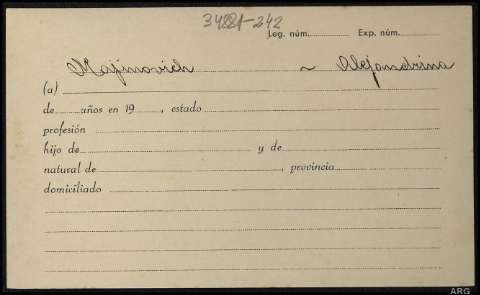 34221-242
Leg. núm. Exp. núm.
Majinovich ~ Alejandrina
(a)
de años en 19 , estado
profesión
hijo de y de
natural de , provincia
domiciliado
ARG